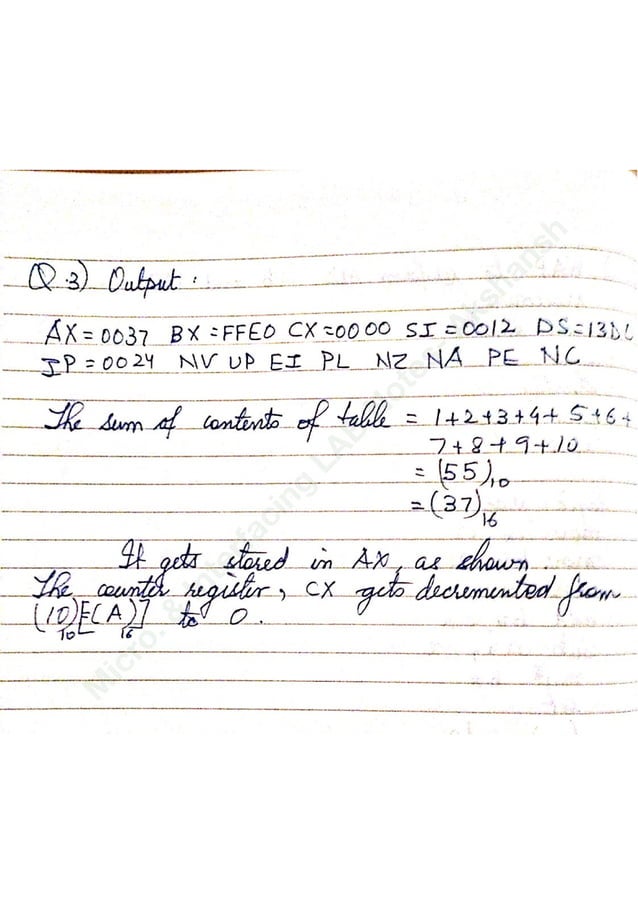 Q.3) Output :
AX = 0037 BX = FFE0 CX = 0000 SI = 0012
IP = 0024 NV UP EI PL NZ NA PE NC
The sum of contents of table = 1+2+3+4+5+6+
7+8+9+10
= (55)10
= (37)16
It gets stored in AX, as shown.
The counter register, CX gets decremented from
(10)10[(A)16] to 0.
Micro. & Interfacing LAB Notes - Akshansh